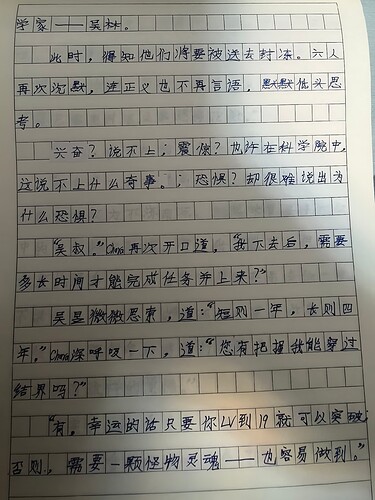 学家——吴林。
此时，得知他们将要被送去封冻。六人
再次沉默，连正义也不再言语，默默低头思
考。
兴奋？说不上；震惊？也许在科学院中，
这说不上什么奇事。；恐惧？却很难说出为
什么恐惧？
“吴叔。”China再次开口道，“我下去后，需要
多长时间才能完成任务并上来？”
吴星微微思索，道：“短则一年，长则四
年。”China深呼吸一下，道：“您有把握我能穿过
结界吗？”
“有。幸运的话只要你LV到19就可以突破，
否则，需要一颗怪物灵魂——也容易做到。”